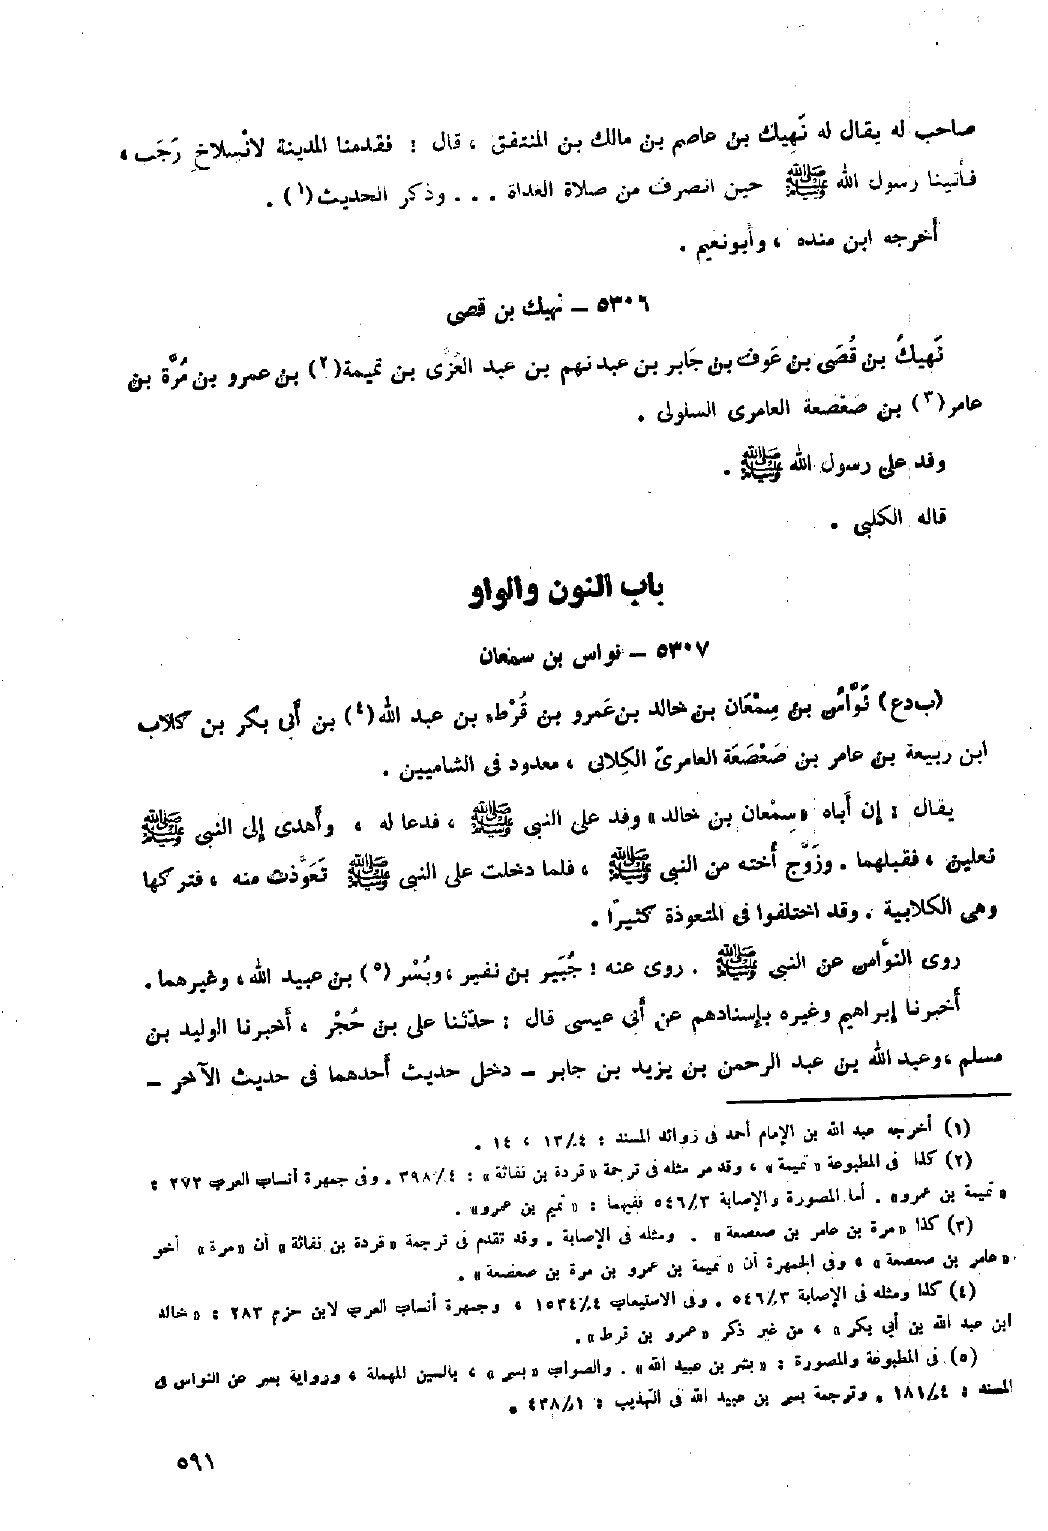 صاحب له يقال له نَهِيك بن عاصم بن مالك بن المنتفق ، قال : فقدمنا المدينة لانْسِلاخِ رَجَب ،
فأتينا رسول الله ﷺ حين انصرف من صلاة الغداة . . . وذكر الحديث(١) .
أخرجه ابن منده ، وأبونعيم .
٥٣٠٦ – نهيك بن قصى
نَهِيكُ بن قُصَى بن عَوف بن جَابر بن عبد نهم بن عبد العُزَّى بن تميمة(٢) بن عمرو بن مُرَّة بن
عامر(٣) بن صَعْصعة العامرى السلولى .
وفد على رسول الله ﷺ .
قاله الكلبى .
باب النون والواو
٥٣٠٧ – نواس بن سمعان
(ب د ع) نَوَّاسُ بن سِمْعَان بن خالد بن عَمرو بن قُرْط بن عبد الله(٤) بن أبى بكر بن كلاب
ابن ربيعة بن عامر بن صَعْصَعَة العامرىّ الكِلابى ، معدود فى الشاميين .
يقال : إن أباه «سِمْعان بن خالد» وفد على النبى ﷺ ، فدعا له ، وأهدى إلى النبى ﷺ
نعلين ، فقبلهما . وزَوَّج أخته من النبى ﷺ ، فلما دخلت على النبى ﷺ تَعَوَّذت منه ، فتركها
وهى الكلابية . وقد اختلفوا فى المتعوذة كثيرًا .
روى النوَّاس عن النبى ﷺ . روى عنه : جُبَير بن نفير ، وبُسْر (٥) بن عبيد الله ، وغيرهما .
أخبرنا إبراهيم وغيره بإسنادهم عن أبى عيسى قال : حدّثنا على بن حُجْر ، أخبرنا الوليد بن
مسلم ، وعبد الله بن عبد الرحمن بن يزيد بن جابر – دخل حديث أحدهما فى حديث الآخر –
(١) أخرجه عبد الله بن الإمام أحمد فى زوائد المسند : ٤/ ١٣ ، ١٤ .
(٢) كذا فى المطبوعة «تميمة» ، وقد مر مثله فى ترجمة «قردة بن نفاثة» : ٤/ ٣٩٨ . وفى جمهرة أنساب العرب ٢٧٢ :
«تميمة بن عمرو» . أما المصورة والإصابة ٣/ ٥٤٦ ففيهما : «تميم بن عمرو» .
(٣) كذا «مرة بن عامر بن صعصعة» . ومثله فى الإصابة . وقد تقدم فى ترجمة «قردة بن نفاثة» أن «مرة» أخو
«عامر بن صعصعة» ، وفى الجمهرة أن «تميمة بن عمرو بن مرة بن صعصعة» .
(٤) كذا ومثله فى الإصابة ٣/ ٥٤٦ . وفى الاستيعاب ٤/ ١٥٣٤ ، وجمهرة أنساب العرب لابن حزم ٢٨٣ : «خالد
ابن عبد الله بن أبي بكر» ، من غير ذكر «عمرو بن قرط» .
(٥) فى المطبوعة والمصورة : «بشر بن عبيد الله» . والصواب «بسر» ، بالسين المهملة ، ورواية بسر عن النواس فى
المسند : ٤/ ١٨١ . وترجمة بسر بن عبيد الله فى التهذيب : ١/ ٤٣٨ .
٥٩١